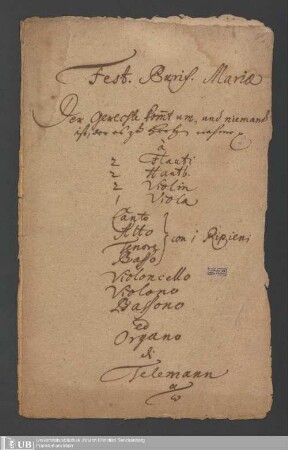 Fest. Purif. Mariæ
Der Gerechte kömt um, und niemand
ist, der es zu Hertzen nehme
à
2 Flauti
2 Hautb.
2 Violin
1 Viola
Canto
Alto
Tenore
Basso
con i Ripieni
Violoncello
Violono
Bassono
ed
Organo
di
Telemann
UB
Universitätsbibliothek Johann Christian Senckenberg
Frankfurt am Main